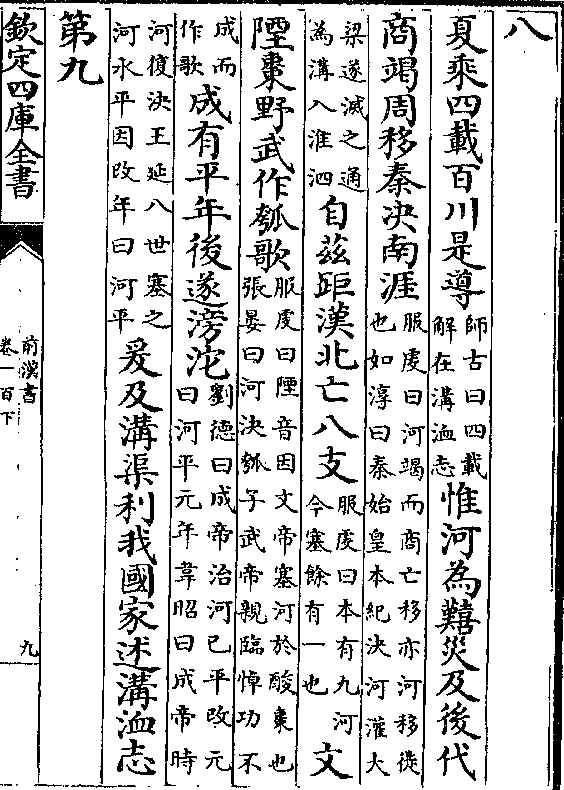 八
夏乘四載百川是導師古曰四載解在溝洫志惟河為囏災及後代
商竭周移秦决南涯服虔曰河竭而商亡移亦河移徙也如淳曰秦始皇本紀决河灌大
梁遂滅之通為溝入淮泗自兹距漢北亡八支服虔曰本有九河今塞餘有一也文
陻棗野武作瓠歌服虔曰陻音因文帝塞河於酸棗也張晏曰河決瓠子武帝親臨悼功不
成而作歌成有平年後遂滂沱劉德曰成帝治河已平改元曰河平元年韋昭曰成帝時
河復決王延八世塞之河水平因改年曰河平爰及溝渠利我國家述溝洫志
第九
欽定四庫全書
前漢書
卷一百下
九